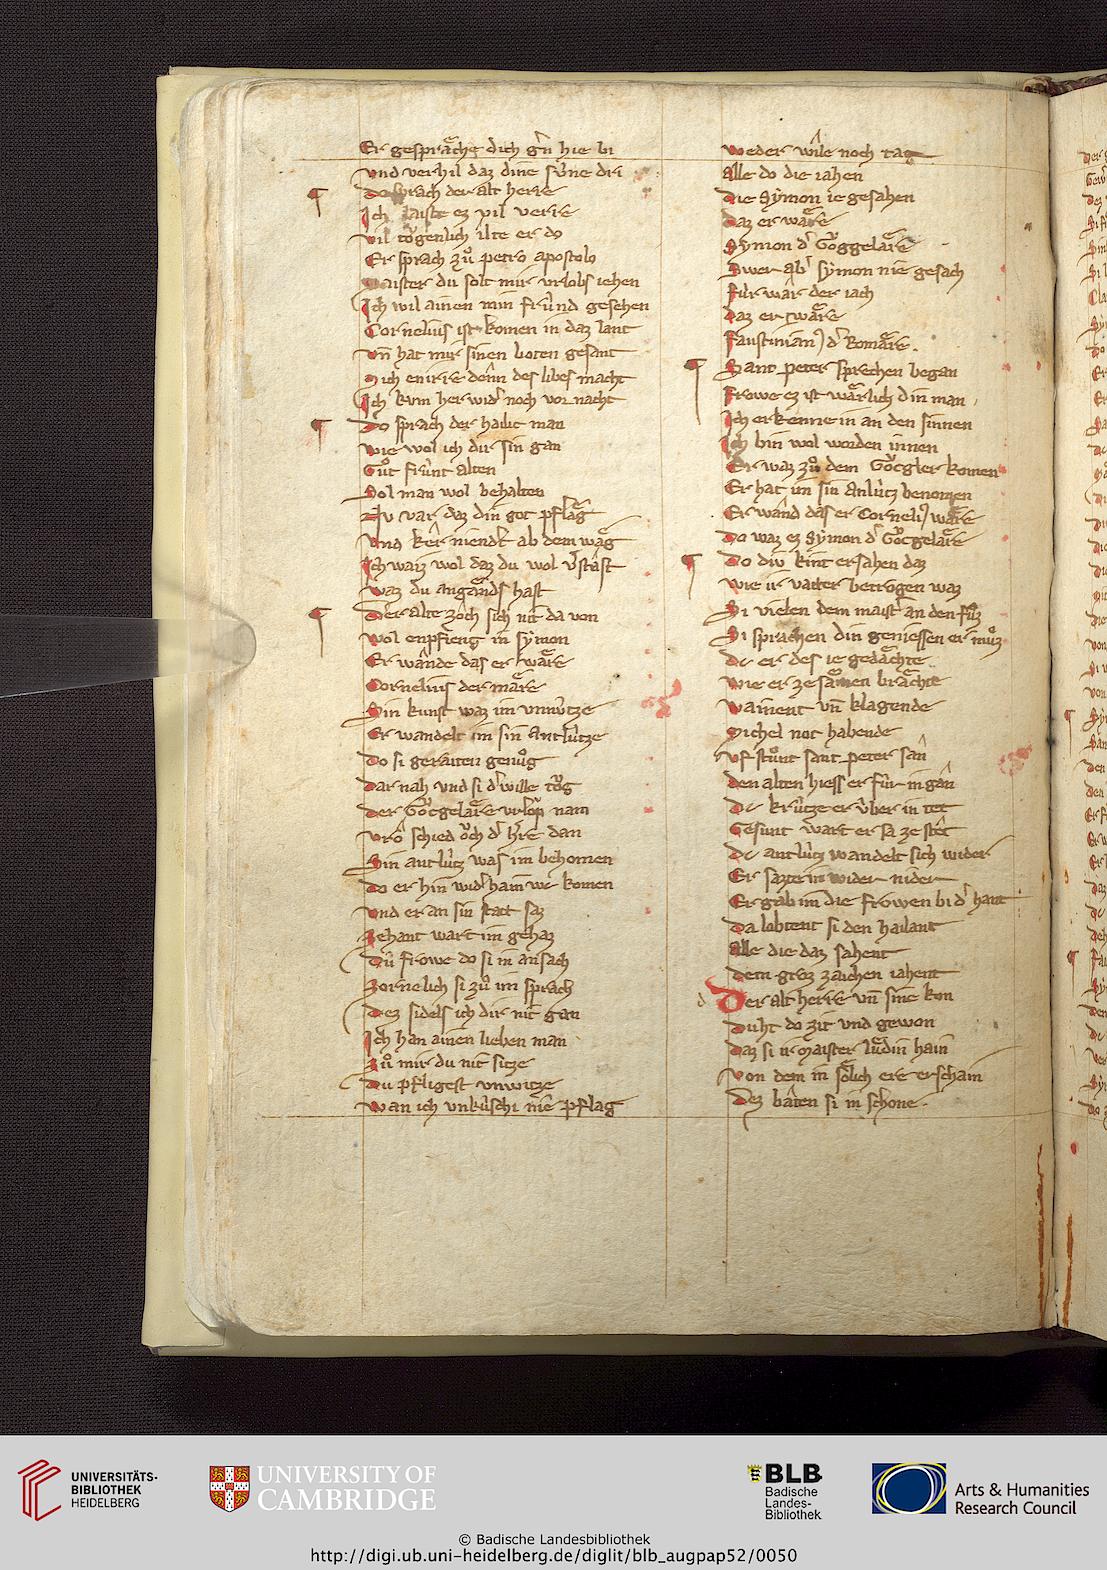 Er gespräche dich gn̄ hie bi
und verhil daz dine sūne dri
Do sprach der alt herre
Ich laiste ez vil verre
vil togenlich ilte er do
Er sprach zů petro apostolo
Maister du solt mir vrlobs iehen
Ich wil ainen min frund gesehen
Cornelius ist komen in daz lant
vn̄ hat mir sinen boten gesant
Mich enirre denn des libes macht
Ich kum her wider noch vor nacht
Do sprach der hailic man
wie wol ich dir sin gan
Gůt frunt alten
Sol man wol behalten
Nv var daz din got pfläg
Und ker niendert ab dem wäg
Ich waiz wol daz du wol v̄stast
waz du angands hast
Der alte zoch sich nit da von
wol enpfieng in symon
Er wände das er wäre
Cornelius der märe
Sin kunst waz im vnnütze
Er wandelt im sin antlütze
Do si geraiten genůg
Dar nah und si der wille tög
der Göcgeläre vrlop nam
vrô schied öch d' h're dan
Sin antlütz was im behomen
Do er hin wider haim wer komen
und er an sin statt saz
Zehant wart im gehaz
Dü frowe do si in ansach
Zornelich si zů im sprach
Dez sidels ich dir nit gan
Ich han ainen lieben man
Zů mir du nit sitze
Du pfligest unwitze
wan ich vnküschi nie pflag
weder wile noch tag
Alle do die iahen
Die Symon ie gesahen
Daz er wäre
Symon d' Göggeläre
Swer ab' symon nie gesach
für wär der iach
Daz er wäre
Faustinian d' Romäre.
Sant peter sprechen began
Frowe ez ist wärlich din man
Ich erkenne in an den sinnen
Ich bin wol worden innen
Er waz zů dem Göcgler komen
Er hat im sin Anlütz benomen
Er wänd das er Corneli wäre
Do waz ez Symon d' Göcgeläre
Do diu kint ersahen daz
wie ir vatter betrogen waz
Si vielen dem maist' an den fůz
Si sprachen din geniessen er můz
Dc er des ie gedächte
wie er ze samen brächte
vainent vn̄ klagende
Michel not habende
Uf stůnt sant peter san
den alten hiess er für in gân
Dc krütze er über in tet
Gesunt wart er sa ze stet
Dc antlütz wandelt sich wider
Er sazte in wider nider
Er gab im die frowen bi d' hant
Da lobtent si den hailant
Alle die daz sahent
dem groz zaichen iahent
Der alt herre vn̄ sine kon
Duht do zit und gewon
Daz si ir Maister lüdin hain
Von dem in sölich ere erschain
Dez bäten si in schone.
UNIVERSITÄTS-
BIBLIOTHEK
HEIDELBERG
UNIVERSITY OF
CAMBRIDGE
BLB
Badische
Landes-
Bibliothek
Arts & Humanities
Research Council
© Badische Landesbibliothek
http://digi.ub.uni-heidelberg.de/diglit/blb_augpap52/0050